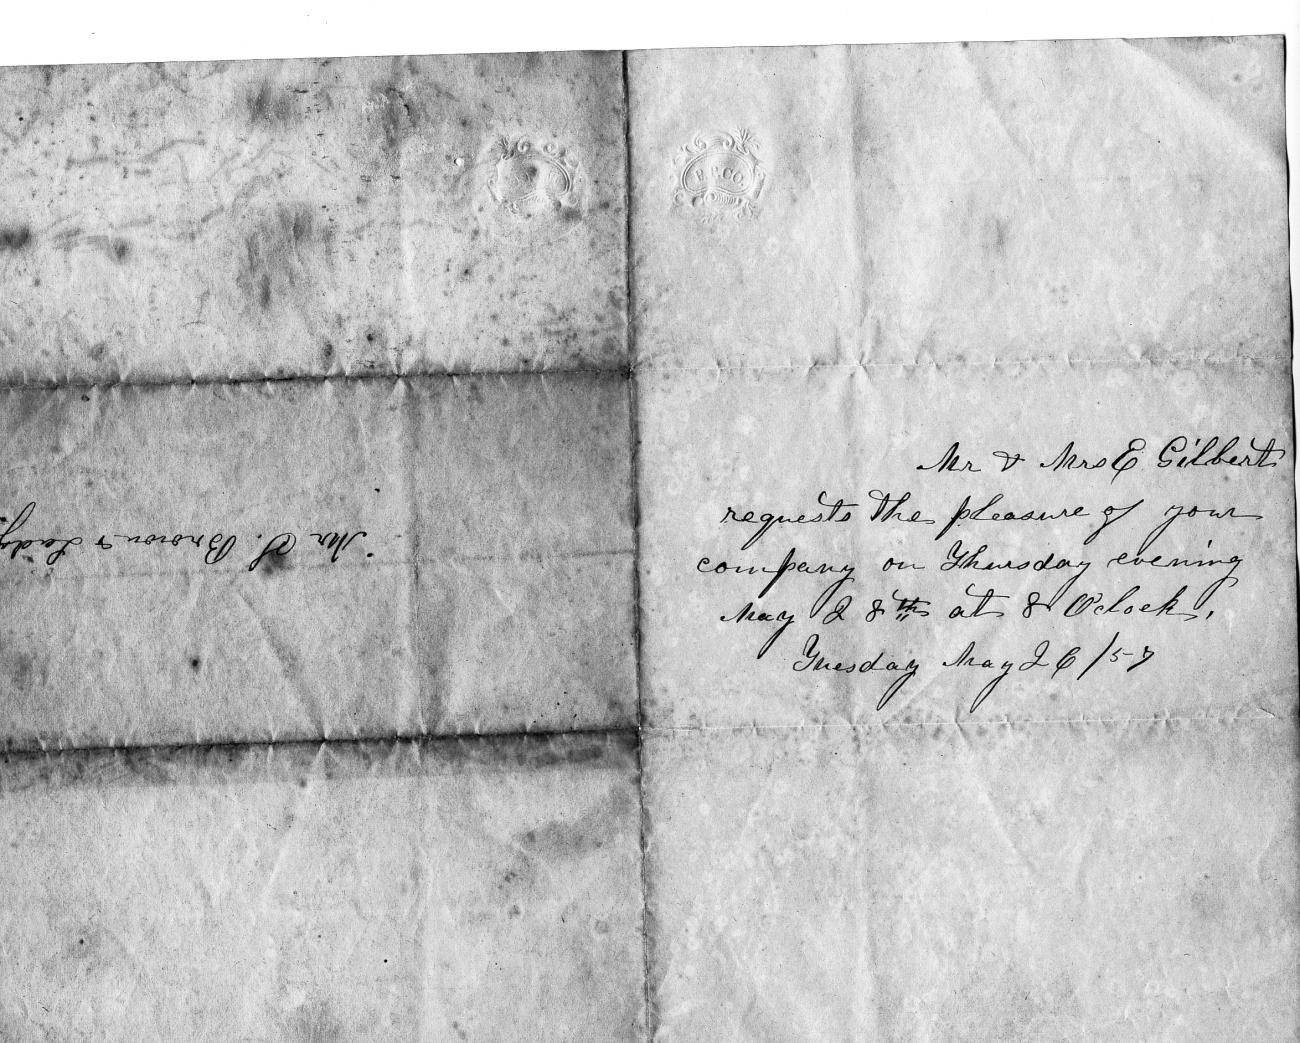 P. P. CO.
Mr & Mrs E Gilbert
requests the pleasure of your
company on Thursday evening
May 28th at 8 Oclock,
Tuesday May 26/57
Mr S. Brown & Lady